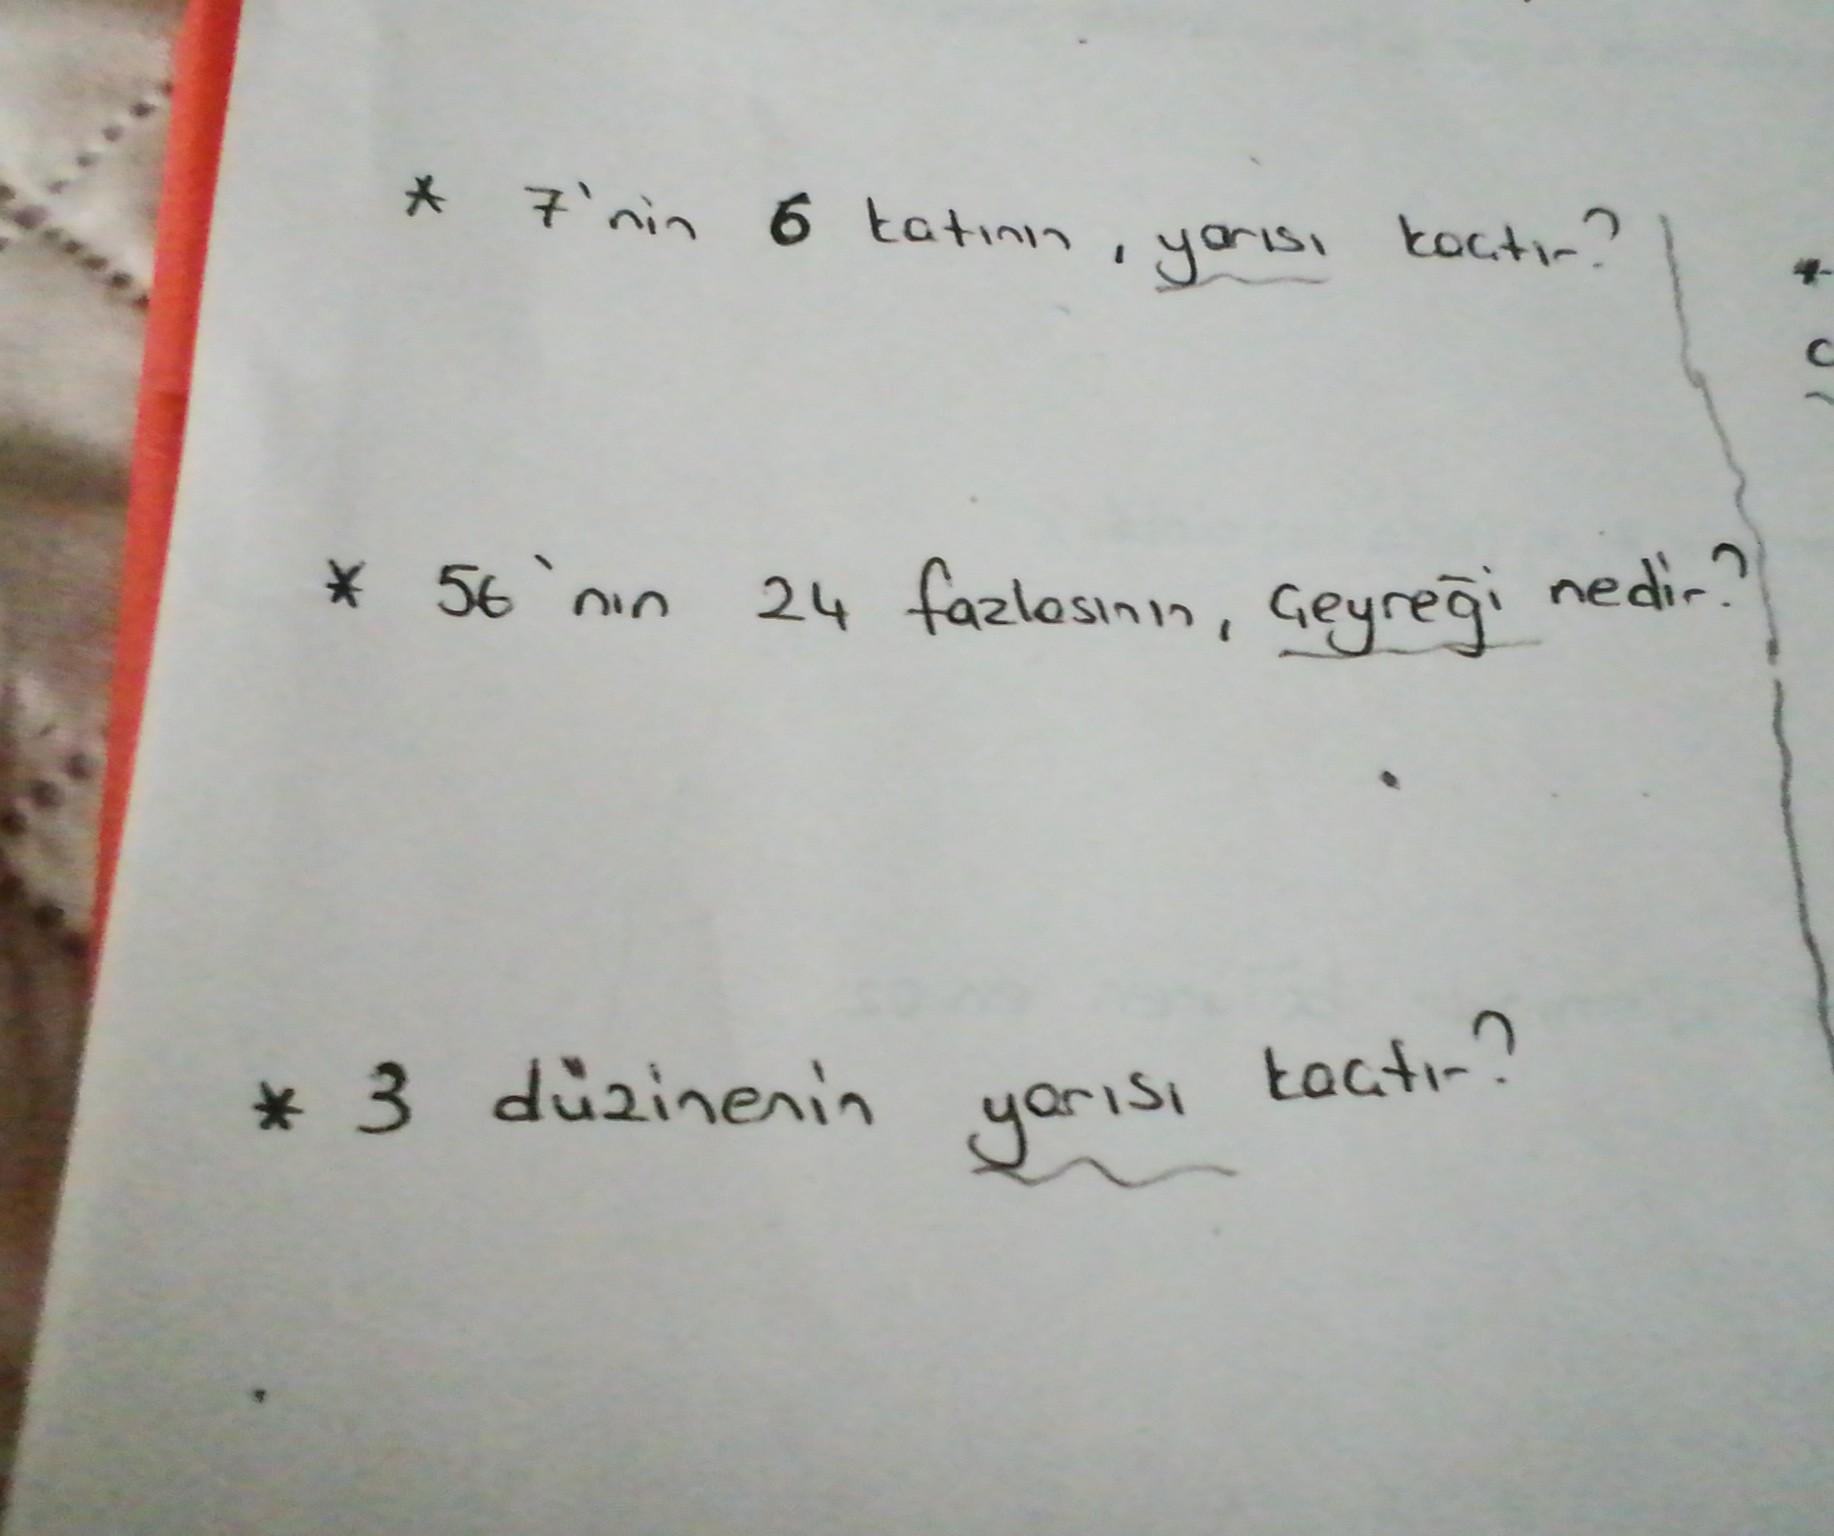 * 7'nin 6 katının, yarısı kaçtır?
* 56'nın 24 fazlasının, çeyreği nedir?
* 3 düzinenin yarısı kaçtır?